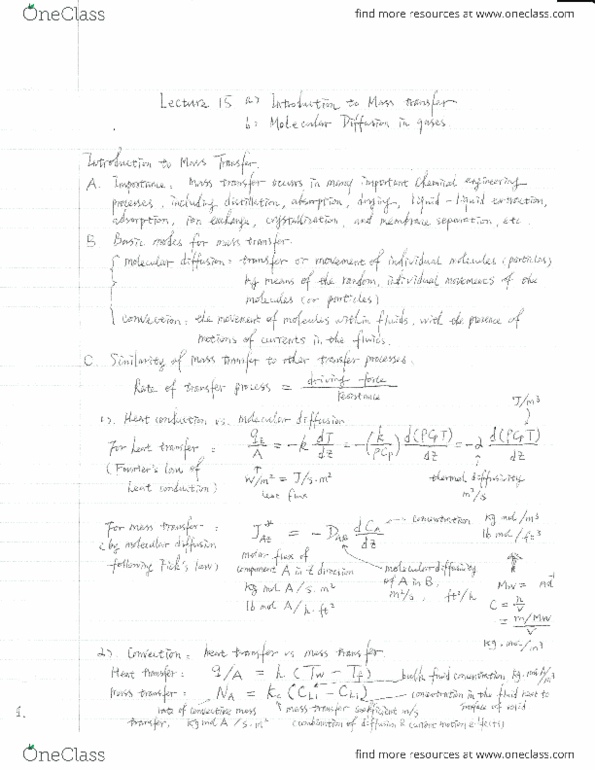 OneClass
find more resources at www.oneclass.com
Lecture 15 a) Introduction to Mass transfer
b: Molecular Diffusion in gases.
Introduction to Mass Transfer.
A. Importance: Mass transfer occurs in many important chemical engineering
processes, including distillation, absorption, drying, liquid-liquid extraction,
absorption, ion exchange, crystallization, and membrane separation, etc.
B. Basic modes for mass transfer.
molecular diffusion = transfer or movement of individual molecules (particles)
by means of the random, individual movements of the
molecules (or particles)
convection: the movement of molecules within fluids, with the presence of
motions of currents in the fluids.
C. Similarity of mass transfer to other transfer processes.
Rate of transfer process = driving force / resistance
J/m³
1). Heat conduction vs. molecular diffusion
For heat transfer: q_z/A = -k dT/dz = -(k/ρCp) d(ρCpT)/dz = -α d(ρCpT)/dz
(Fourier's law of heat conduction)
W/m² = J/s·m²
heat flux
thermal diffusivity
m²/s
For mass transfer:
(by molecular diffusion
following Fick's law)
J*_Az = -D_AB dC_A/dz
concentration kg mol/m³
lb mol/ft³
molar flux of
component A in z direction
kg mol A/s·m²
lb mol A/h·ft²
molecular diffusivity
of A in B,
m²/s, ft²/h
Mw =
C = n/V
= m/Mw / V
2). Convection: heat transfer vs mass transfer.
Heat transfer: q/A = h (Tw - Tf)
bulk fluid concentration, kg mol/m³
mass transfer: N_A = kc (C_L1 - C_Li)
concentration in the fluid next to
surface of solid
rate of convective mass
transfer, kg mol A/s·m²
mass transfer coefficient m/s
combination of diffusion & current motion effects)
1.
OneClass
find more resources at www.oneclass.com